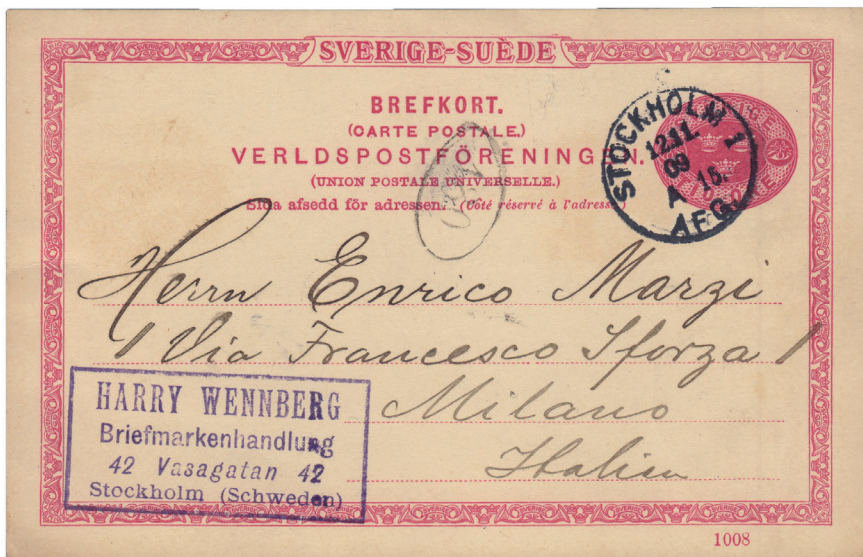 SVERIGE-SUÈDE
BREFKORT.
(CARTE POSTALE.)
VERLDSPOSTFÖRENINGEN.
(UNION POSTALE UNIVERSELLE.)
Sida afsedd för adressen. (Côté réservé à l'adresse.)
STOCKHOLM 1
12.11.
09
A 15.
AFG.
Herrn Enrico Marzi
1 Via Francesco Sforza 1
Milano
Italien
HARRY WENNBERG
Briefmarkenhandlung
42 Vasagatan 42
Stockholm (Schweden)
1008